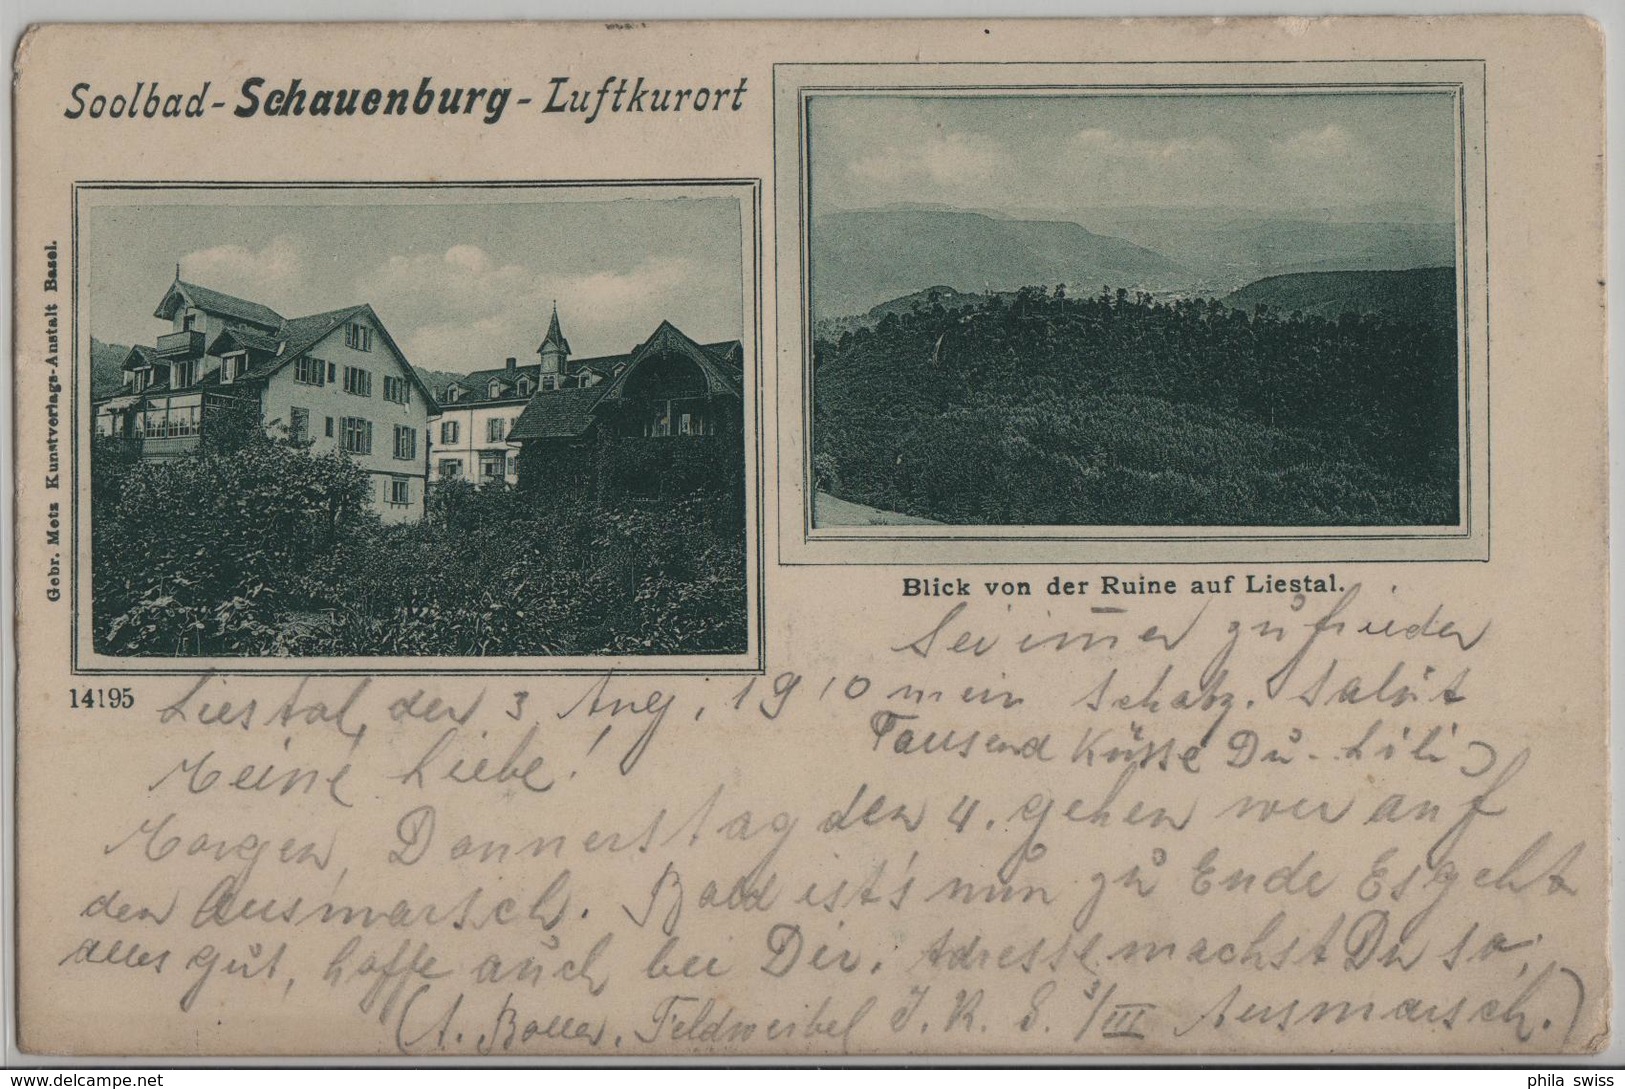 Soolbad - Schauenburg - Luftkurort
Gebr. Metz Kunstverlags-Anstalt Basel.
Blick von der Ruine auf Liestal.
14195
Liestal, den 3. Aug, 1910
Meine Liebe!
Morgen, Donnerstag den 4. gehen wir auf
den Ausmarsch. Bald ist's nun zu Ende Es geht
alles gut, hoffe auch bei Dir. Adresse machst Du so,
(A. Boller, Feldweibel I. R. S. 3/III Ausmarsch.)
Sei im̅er zufrieden
mein Schatz. Salüt
Tausend Küsse Du - Lili
phila swiss